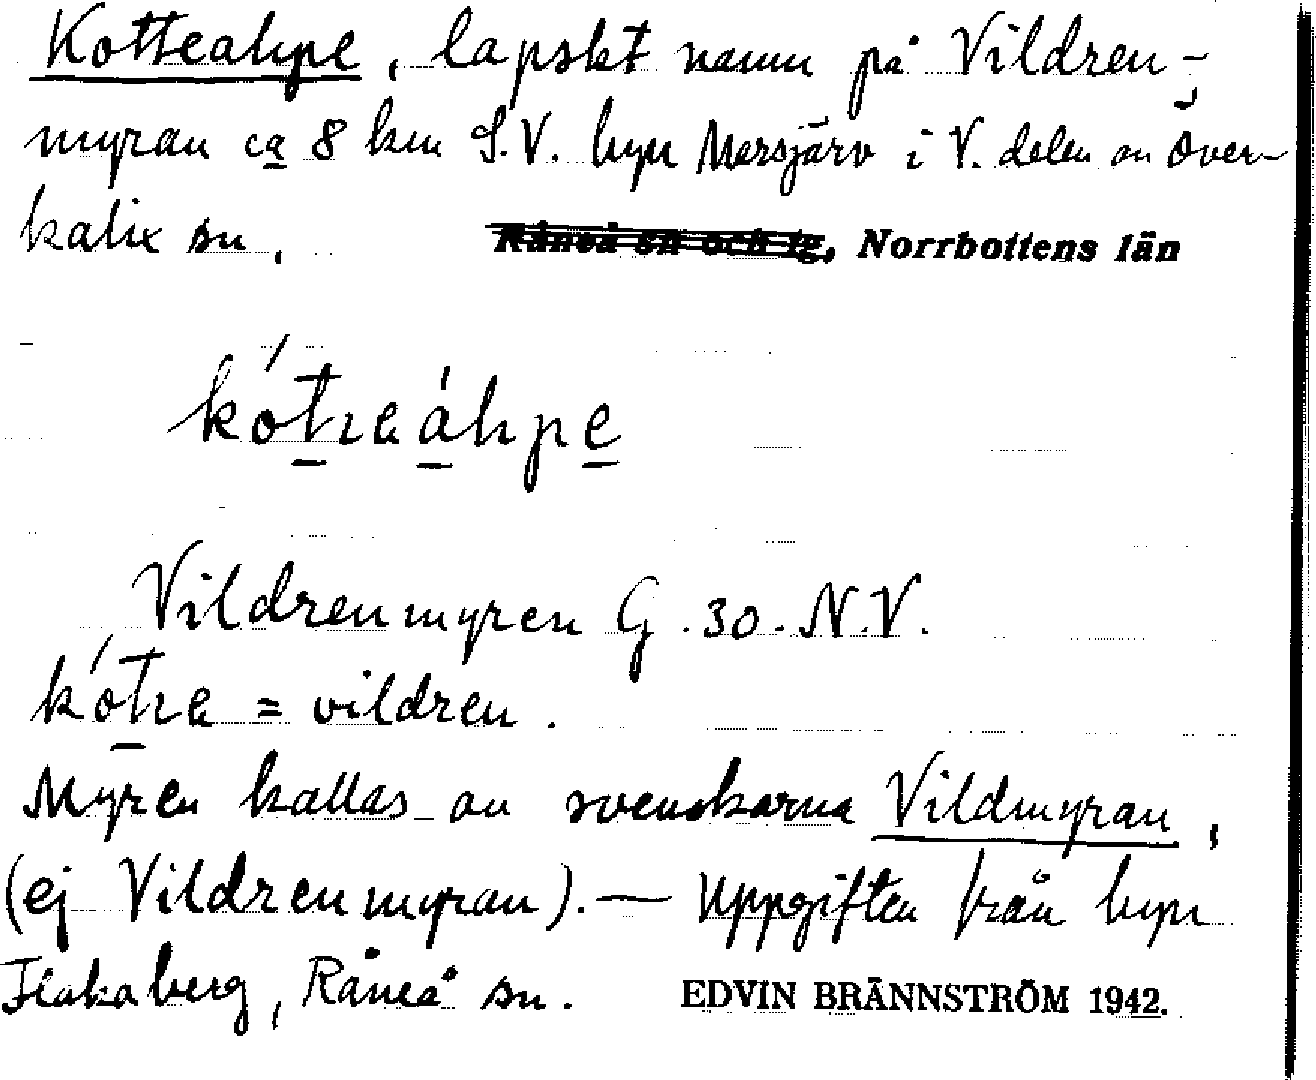 Kotteahpe, lapskt namn på Vildren-
myran ca 8 km S.V. byn Mersjärv i V. delen av Över-
kalix sn.
Råneå sn och tg, Norrbottens län
kótteáhpe
Vildrenmyren G. 30. N.V.
kótte = vildren.
Myren kallas av svenskarna Vildmyran,
(ej Vildrenmyran). — Uppgiften från byn
Flakaberg, Råneå sn.
EDVIN BRÄNNSTRÖM 1942.